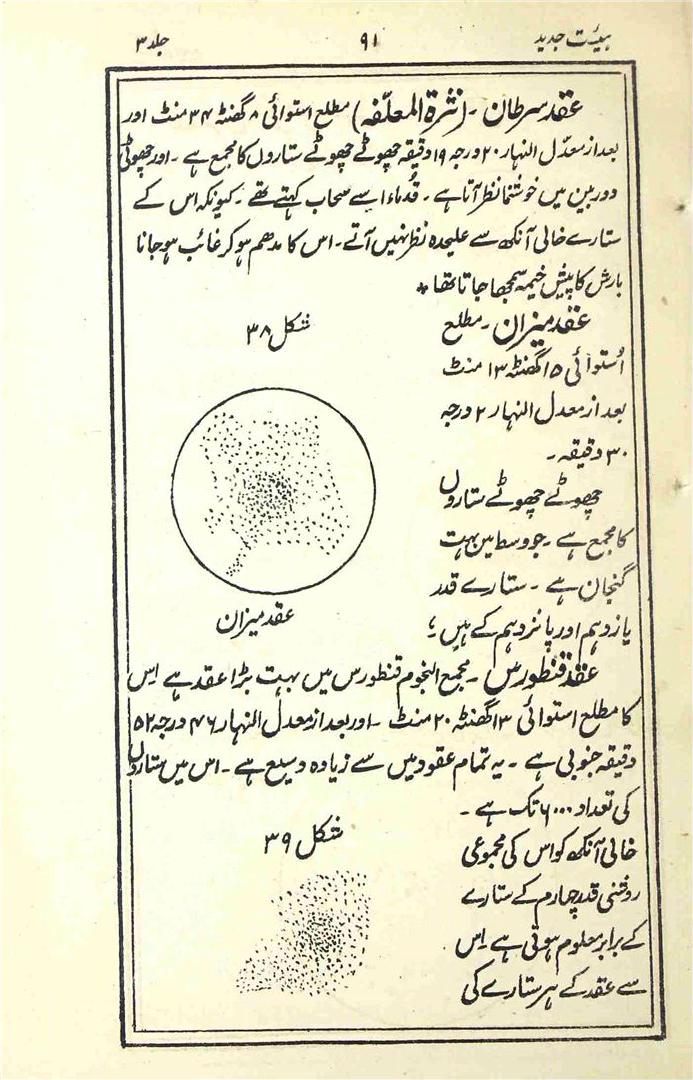 ہیئت جدید ۹۱ جلد ۳
عقد سرطان ۔ (نثرۃ المعلّفہ) مطلع استوائی ۸ گھنٹہ ۳۴ منٹ اور
بعد از معدّل النہار ۲۰ درجہ ۱۹ دقیقہ چھوٹے چھوٹے ستاروں کا مجمع ہے ۔ اور چھوٹی
دوربین میں خوشنما نظر آتا ہے ۔ قُدماء اسے سحاب کہتے تھے ۔ کیونکہ اس کے
ستارے خالی آنکھ سے علیحدہ نظر نہیں آتے ۔ اس کا مدھم ہو کر غائب ہو جانا
بارش کا پیش خیمہ سمجھا جاتا تھا *
عقد میزان ۔ مطلع
اُستوائی ۱۵ گھنٹہ ۱۳ منٹ
بعد از معدل النہار ۲ درجہ
۳۰ دقیقہ ۔
چھوٹے چھوٹے ستاروں
کا مجمع ہے ۔ جو وسط میں بہت
گنجان ہے ۔ ستارے قدر
یازدہم اور پانزدہم کے ہیں ؛
شکل ۳۸
عقد میزان
عقد قنطورس ۔ مجمع النجوم قنطورس میں بہت بڑا عقد ہے اس
کا مطلع استوائی ۱۳ گھنٹہ ۲۰ منٹ ۔ اور بعد از معدل النہار ۴۶ درجہ ۵۲
دقیقہ جنوبی ہے ۔ یہ تمام عقود میں سے زیادہ وسیع ہے ۔ اس میں ستاروں
کی تعداد ۶۰۰۰ تک ہے ۔
خالی آنکھ کو اس کی مجموعی
روشنی قدر چہارم کے ستارے
کے برابر معلوم ہوتی ہے اس
سے عقد کے ہر ستارے کی
شکل ۳۹